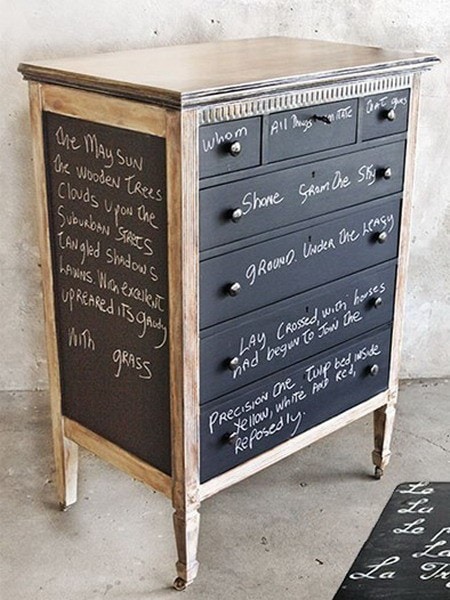 The May Sun
The wooden Trees
Clouds upon the
Suburban Streets
Tangled shadows
Lawns. With excellent
upreared its gaudy
With grass
whom
All Things imitate
that guys
Shone from the Sky
ground. Under the Leafy
Lay crossed, with horses
had begun to join the
Precision the Tulip bed inside
Yellow, white and Red,
Reposedly.
Le
La
Le
La
La Tr